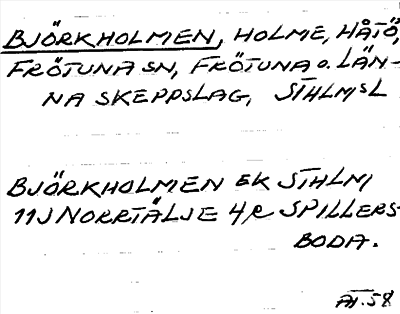 BJÖRKHOLMEN, HOLME, HÅTÖ,
FRÖTUNA SN, FRÖTUNA o. LÄN-
NA SKEPPSLAG, STHLMSL
BJÖRKHOLMEN EK STHLM
11J NORRTÄLJE 4R SPILLERS-
BODA.
AT. 58